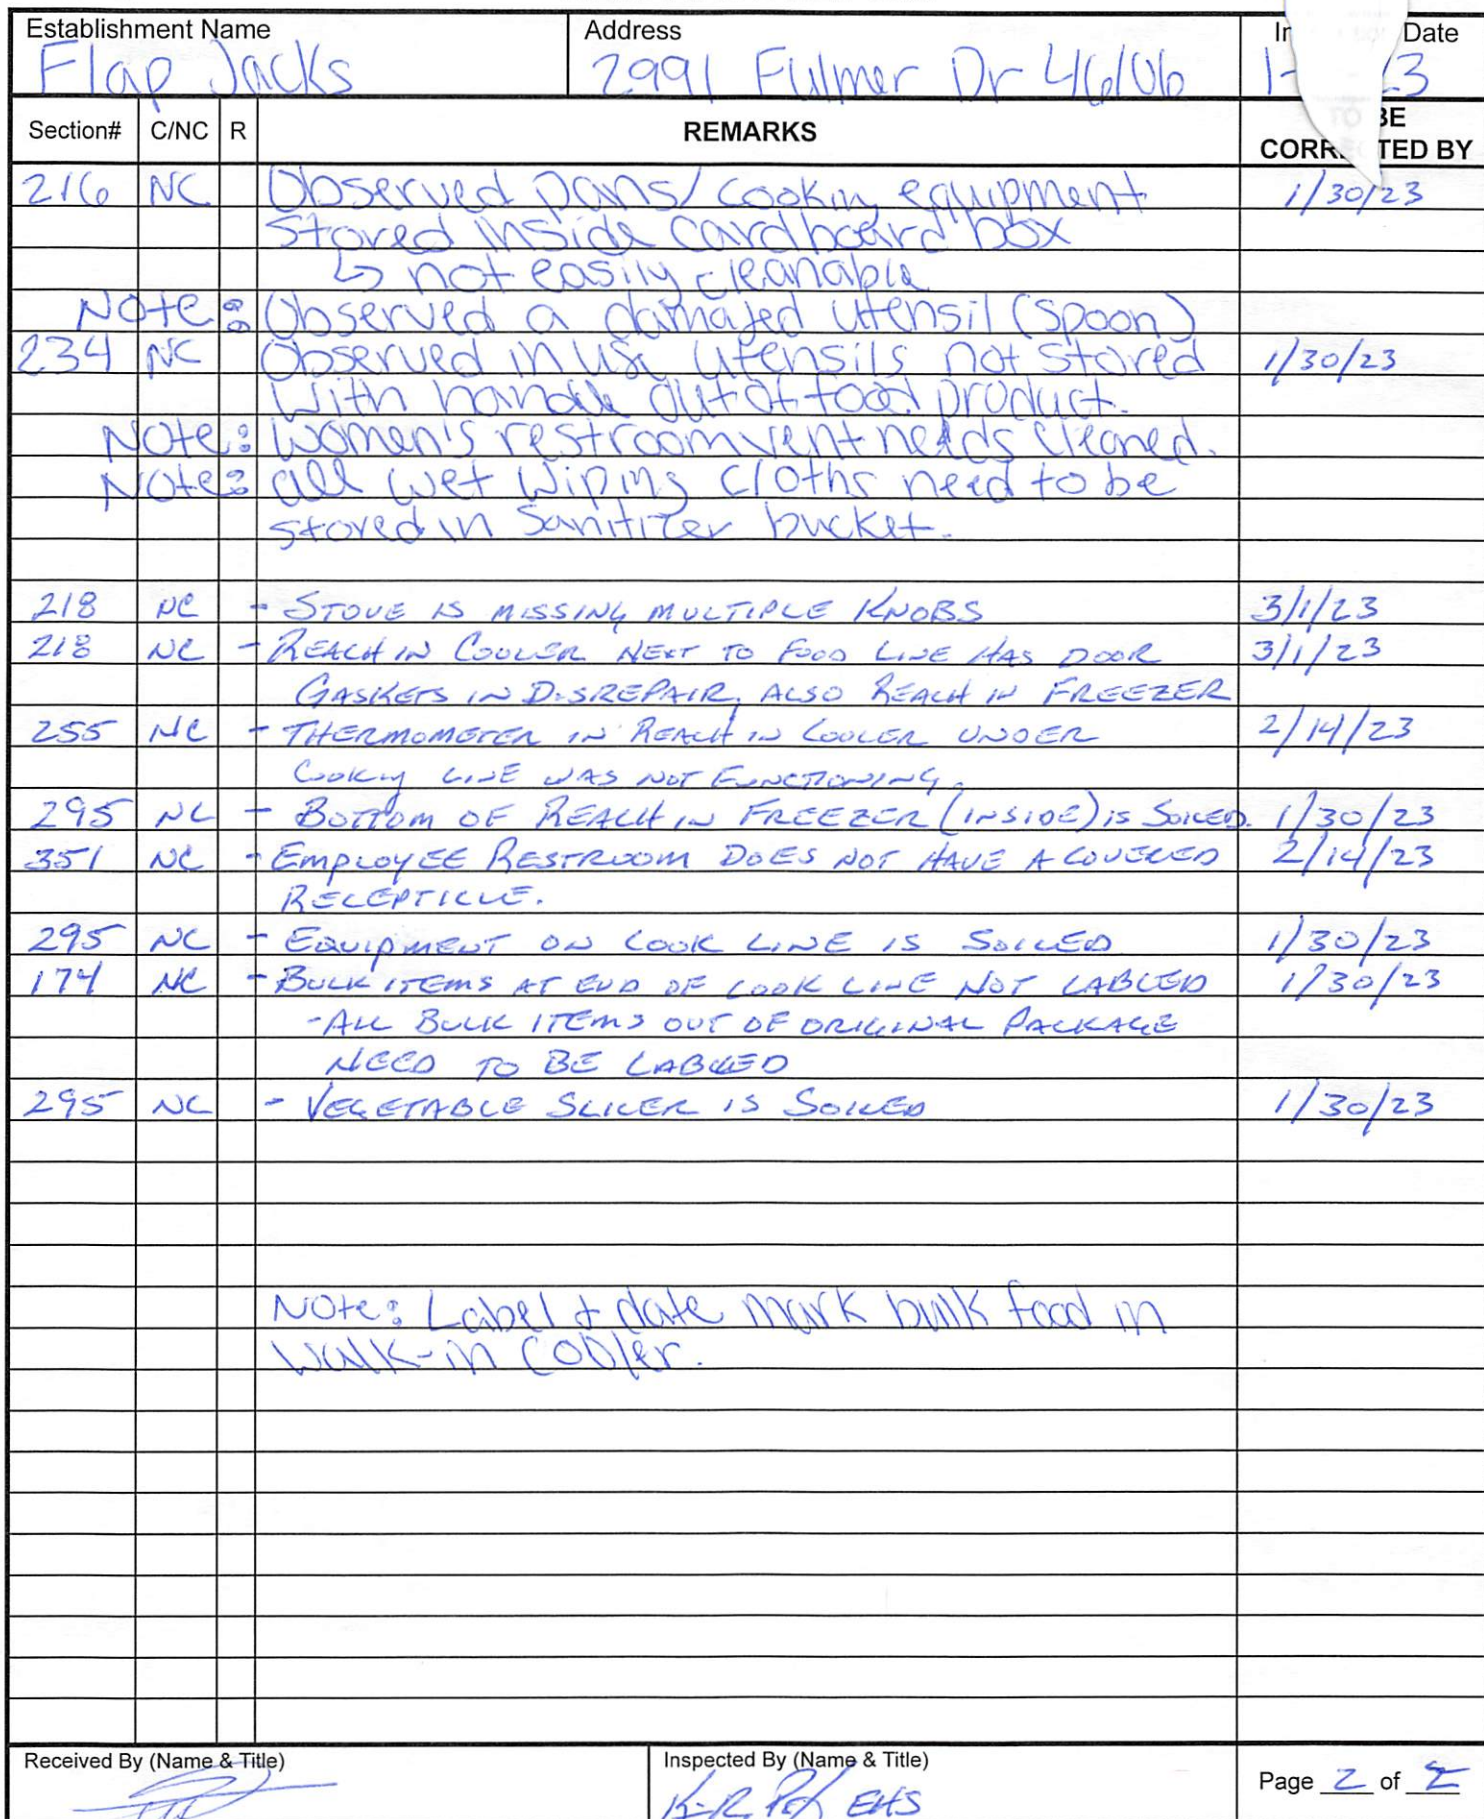 Establishment Name Address In Date
Flap Jacks 2991 Fulmer Dr 46106 1- 23
Section# C/NC R REMARKS BE
CORRECTED BY
216 NC Observed pans/ cooking equipment 1/30/23
stored inside cardboard box
↳ not easily cleanable
Note: Observed a damajed utensil (spoon)
234 NC Observed in use utensils not stored 1/30/23
with handle out of food product.
Note: Women's restroom vent needs cleaned.
Note: all wet wiping cloths need to be
stored in Sanitizer bucket.
218 NC - STOVE IS MISSING MULTIPLE KNOBS 3/1/23
218 NC - REACH IN COOLER NEXT TO FOOD LINE HAS DOOR 3/1/23
GASKETS IN DISREPAIR, ALSO REACH IN FREEZER
255 NC - THERMOMETER IN REACH IN COOLER UNDER 2/14/23
COOKING LINE WAS NOT FUNCTIONING.
295 NC - BOTTOM OF REACH IN FREEZER (INSIDE) IS SOILED. 1/30/23
351 NC - EMPLOYEE RESTROOM DOES NOT HAVE A COVERED 2/14/23
RECEPTICLE.
295 NC - EQUIPMENT ON COOK LINE IS SOILED 1/30/23
174 NC - BULK ITEMS AT END OF COOK LINE NOT LABLED 1/30/23
- ALL BULK ITEMS OUT OF ORIGINAL PACKAGE
NEED TO BE LABLED
295 NC - VEGETABLE SLICER IS SOILED 1/30/23
Note: Label & date mark bulk food in
walk-in cooler.
Received By (Name & Title) Inspected By (Name & Title)
EHS Page 2 of 2